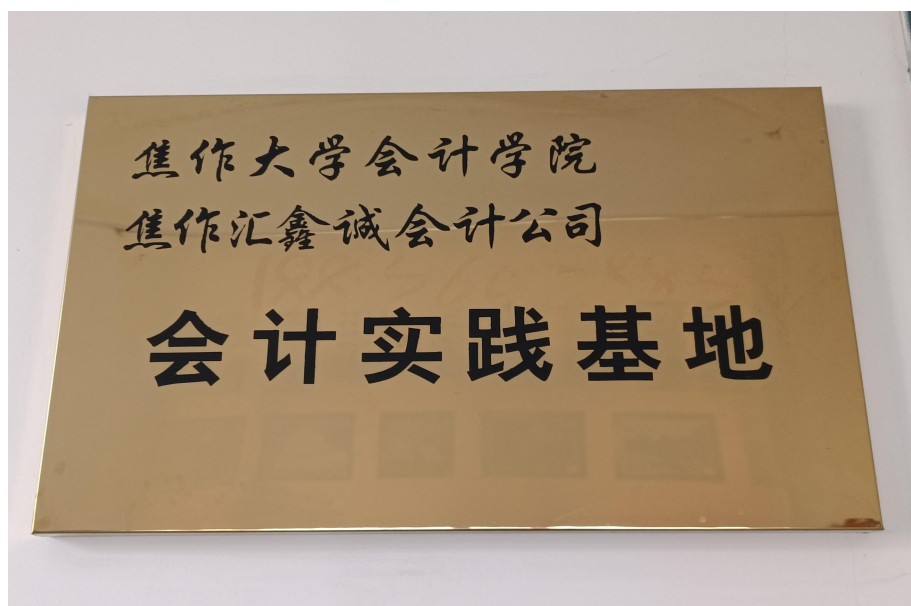 焦作大学会计学院
焦作汇鑫诚会计公司
会计实践基地